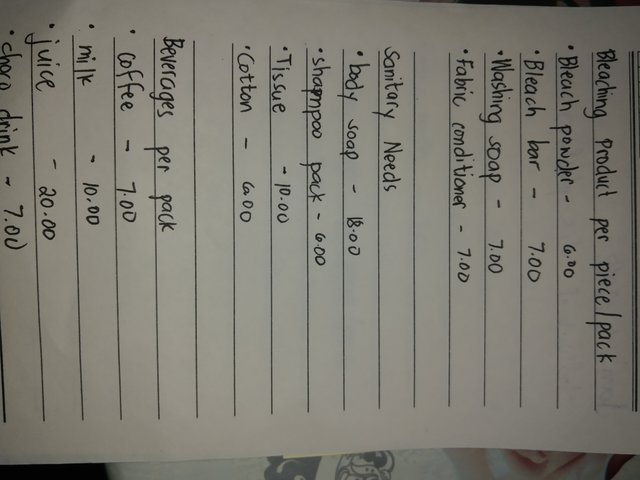 Bleaching product per piece/pack
• Bleach powder - 6.00
• Bleach bar - 7.00
• Washing soap - 7.00
• Fabric conditioner - 7.00
Sanitary Needs
• body soap - 18.00
• shampoo pack - 6.00
• Tissue - 10.00
• Cotton - 6.00
Beverages per pack
• coffee - 7.00
• milk - 10.00
• juice - 20.00
• choco drink - 7.00